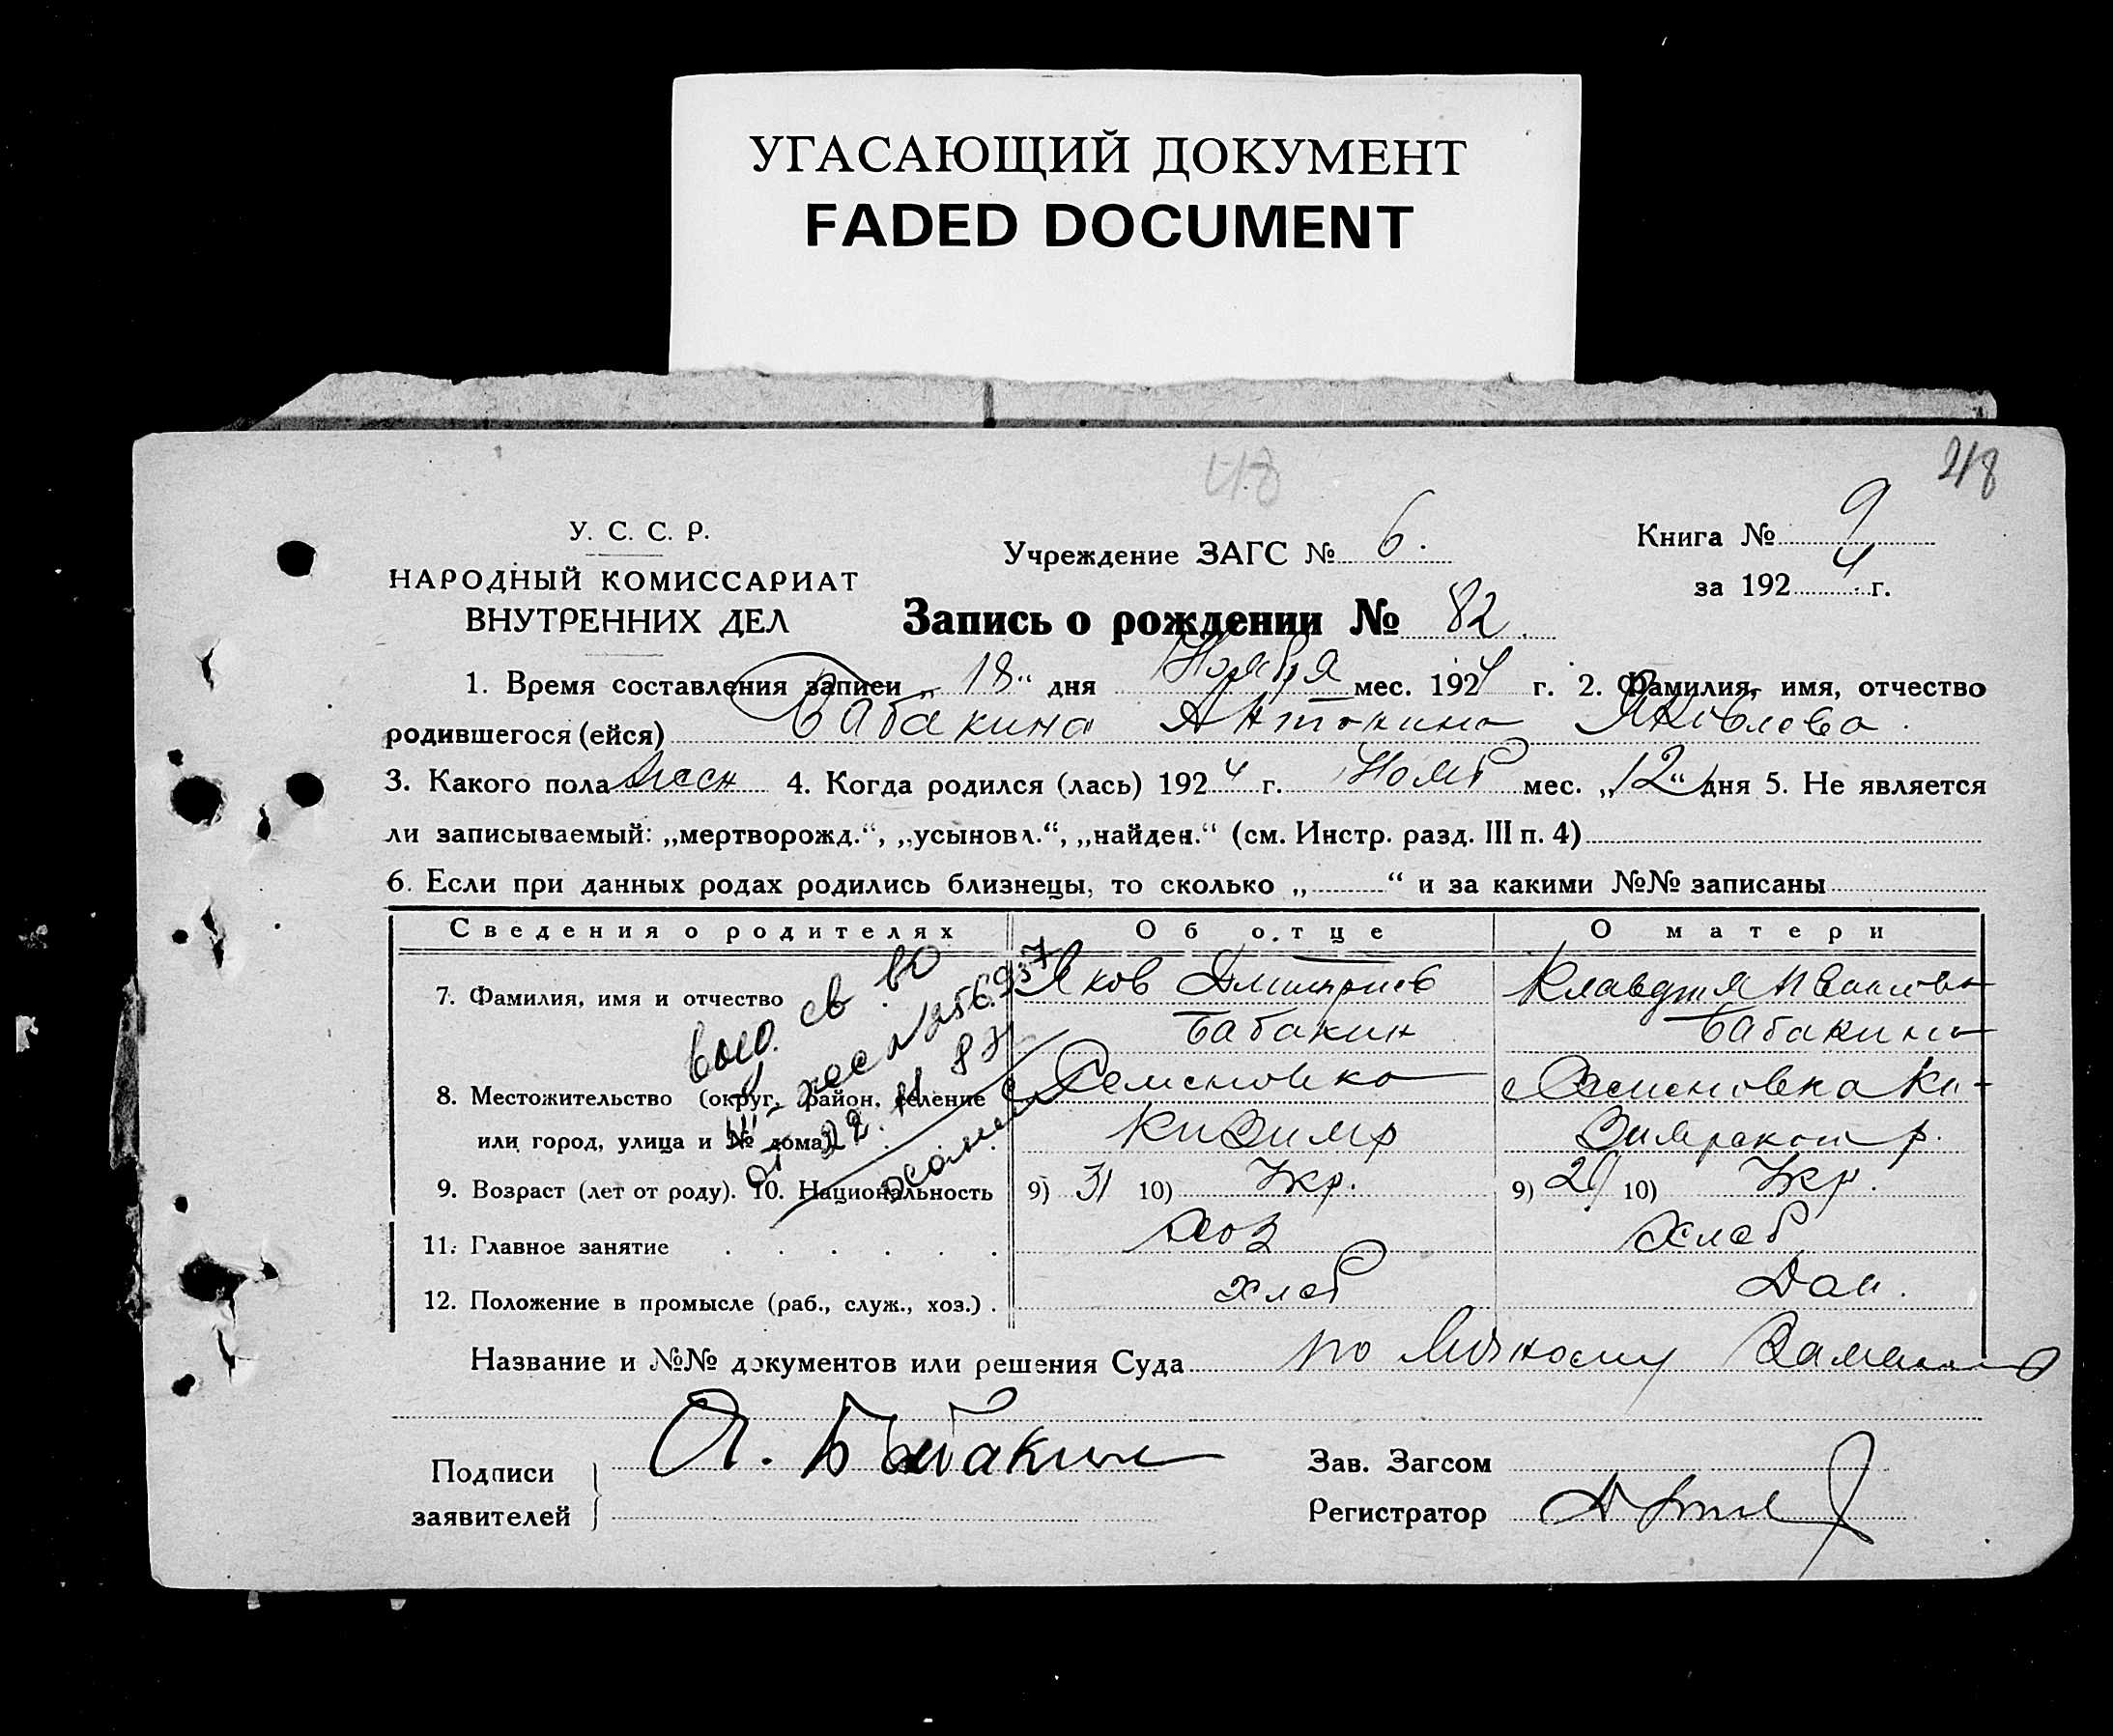 УГАСАЮЩИЙ ДОКУМЕНТ
FADED DOCUMENT
48
48
У. С. С. Р.
НАРОДНЫЙ КОМИССАРИАТ
ВНУТРЕННИХ ДЕЛ
Учреждение ЗАГС № 6.
Книга № 9
за 1924 г.
Запись о рождении № 82.
1. Время составления записи „18“ дня Ноября мес. 1924 г. 2. Фамилия, имя, отчество
родившегося (ейся) Бабакина Антонина Яковлева.
3. Какого пола женск 4. Когда родился (лась) 1924 г. Нояб мес. „12“ дня 5. Не является
ли записываемый: „мертворожд.“, „усыновл.“, „найден.“ (см. Инстр. разд. III п. 4)
6. Если при данных родах родились близнецы, то сколько „ “ и за какими №№ записаны
Сведения о родителях Об отце О матери
7. Фамилия, имя и отчество Яков Дмитриев Клавдия
Бабакин Бабакина
8. Местожительство (округ, район, селение Семеновка Семеновка Ки-
или город, улица и № дома) Кизимр р.
9. Возраст (лет от роду). 10. Национальность 9) 31 10) Укр. 9) 29 10) Укр.
11. Главное занятие хоз хлеб
12. Положение в промысле (раб., служ., хоз.) хлеб Дом.
выд. св во
22. 11 87
Название и №№ документов или решения Суда по личному
Подписи
заявителей
Я. Бабакин
Зав. Загсом
Регистратор